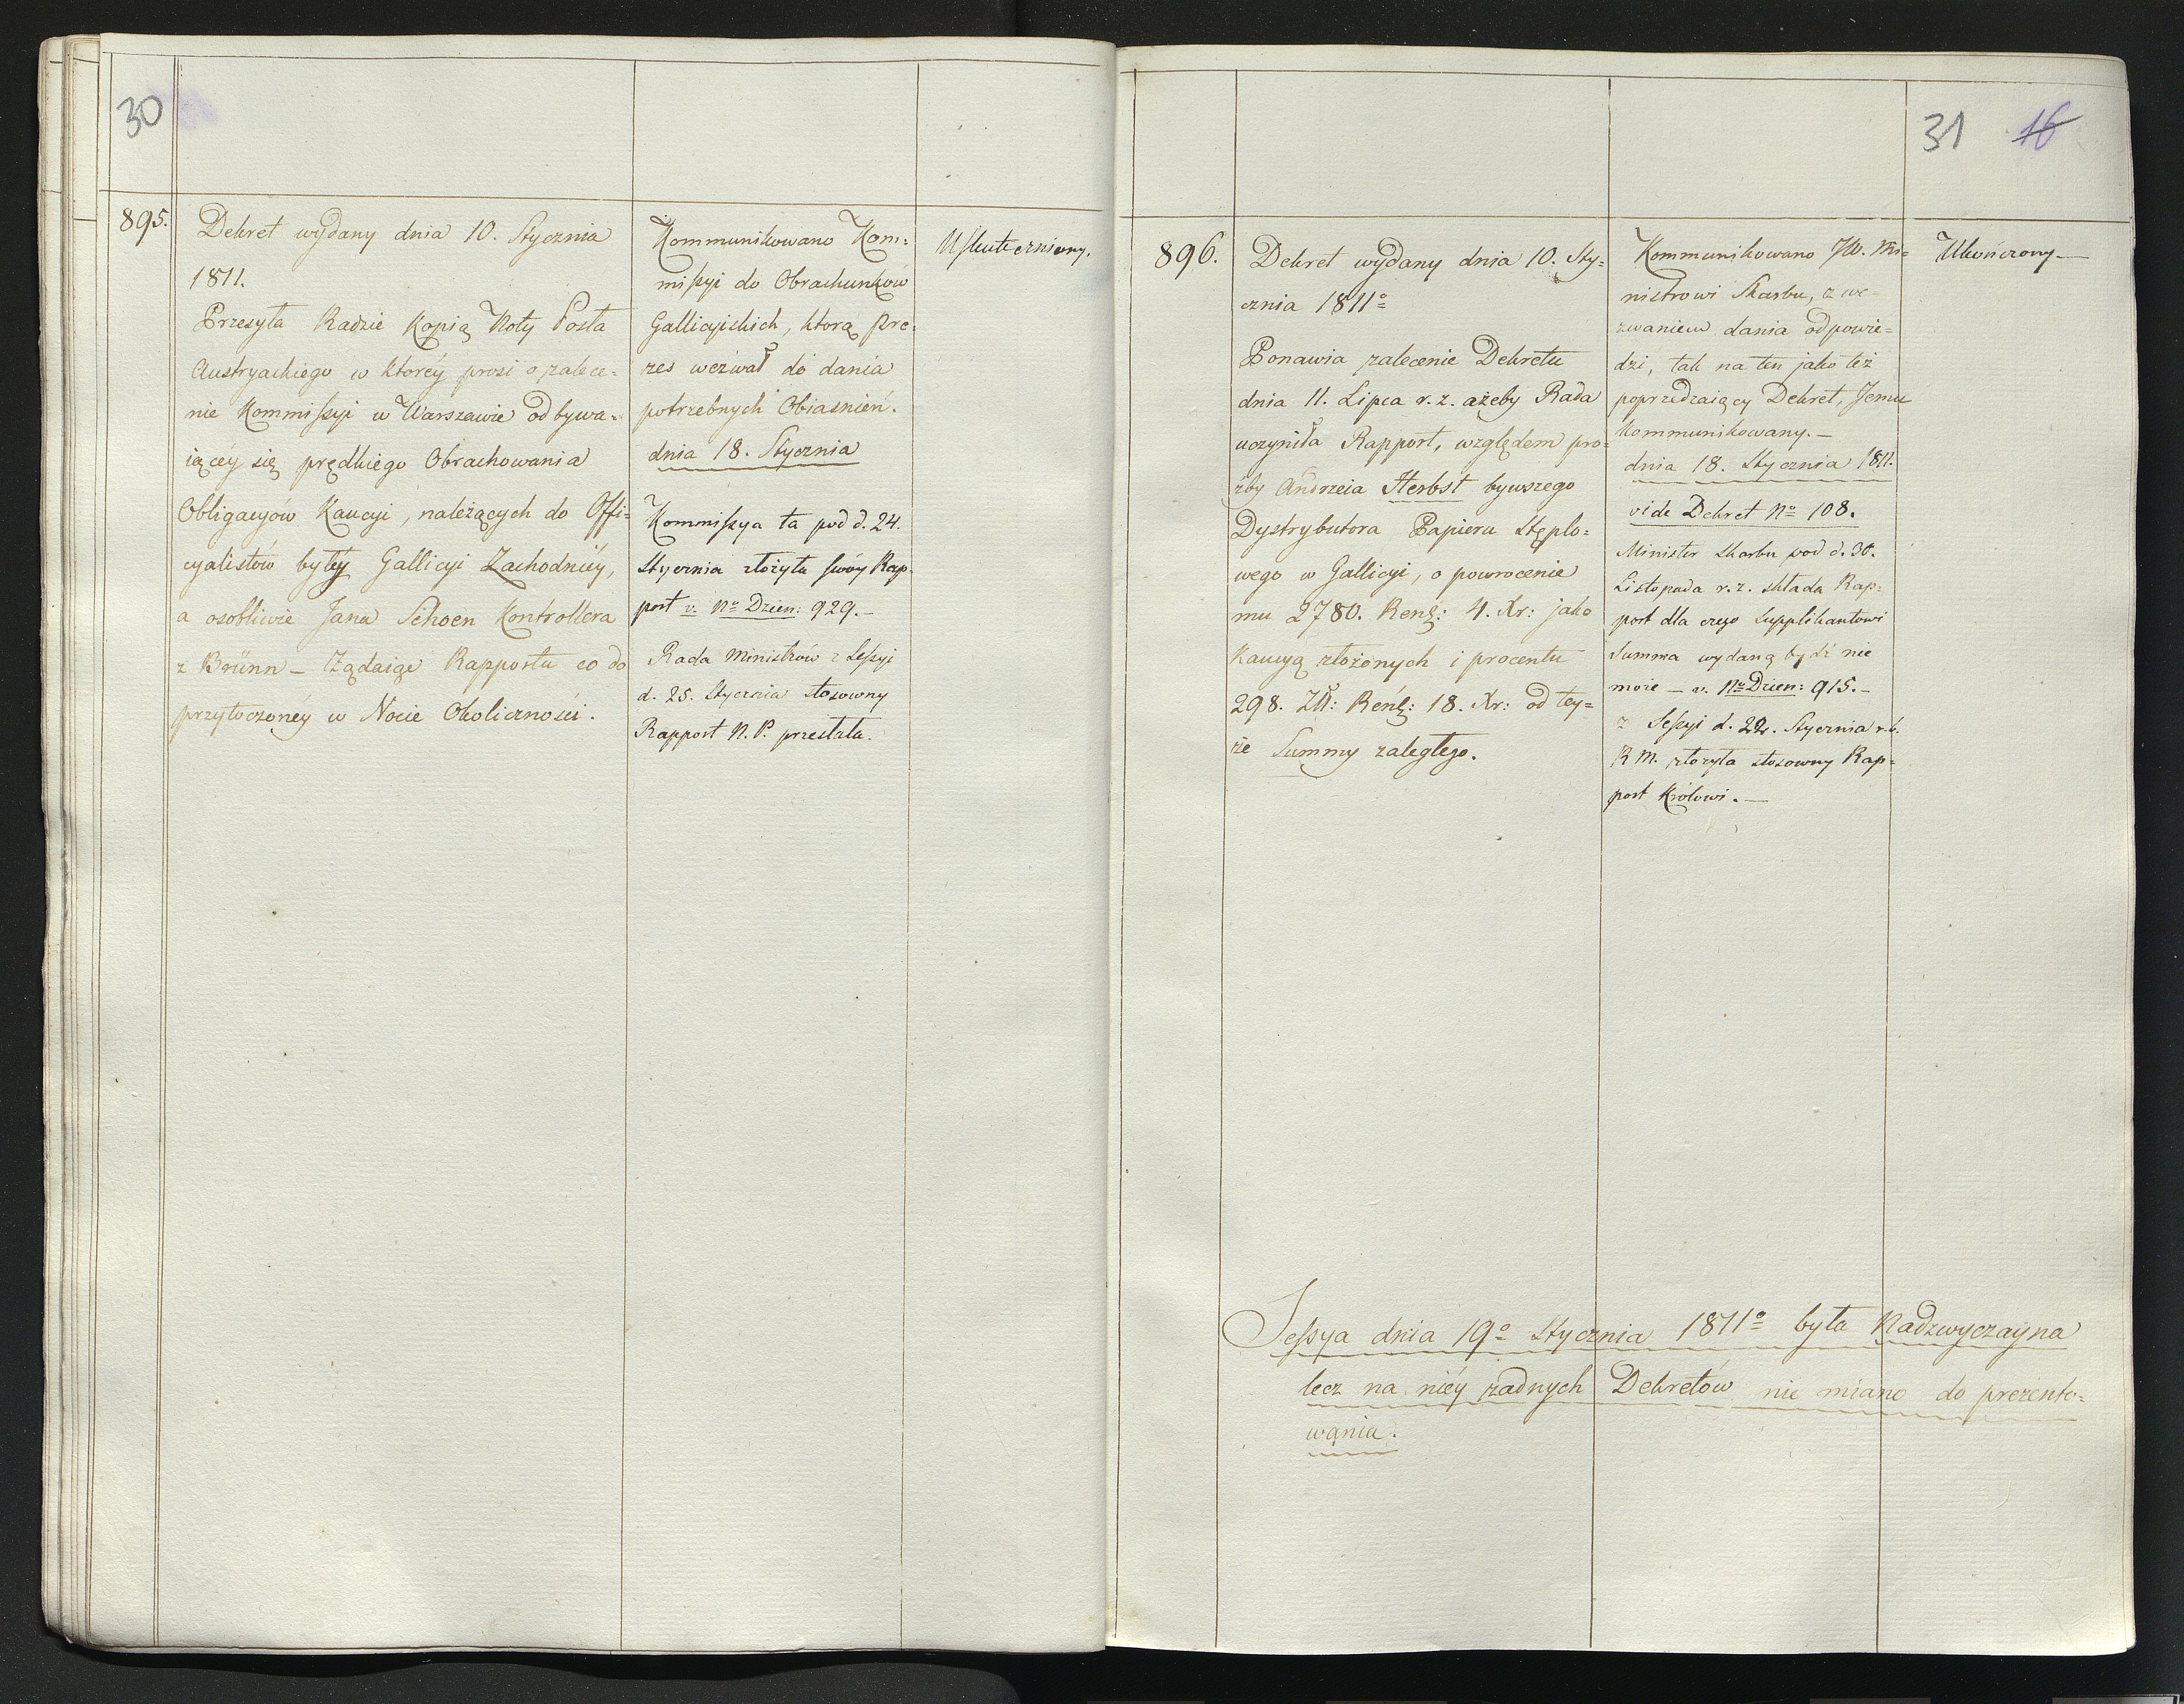 30
895.
Dekret wydany dnia 10. Stycznia
1811.
Przesyła Radzie Kopią Noty Posła
Austryackiego w któréy prosi o zalece=
nie Kommissyi w Warszawie odbywa=
iącéy się prędkiego Obrachowania
Obligacyów Kaucyi, należących do Offi=
cyalistów byłéy Gallicyi Zachodniéy,
a osobliwie Jana Schoen Kontrollera
z Brünn – Żądaiąc Rapportu co do
przytoczonéy w Nocie Okoliczności.
Kommunikowano Kom=
missyi do Obrachunków
Gallicyiskich, którą Pre=
zes wezwał do dania
potrzebnych Obiasnień.
dnia 18. Stycznia
Kommissya ta pod d. 24.
Stycznia złożyła swóy Rap=
port v. No Dzien: 929. –
Rada Ministrów z Sessyi
d. 25. Stycznia stosowny
Rapport N. P. przesłała.
Uskuteczniony.
31 16
896.
Dekret wydany dnia 10. Sty=
cznia 1811o
Ponawia zalecenie Dekretu
dnia 11. Lipca r. z. ażeby Rada
uczyniła Rapport, względem pro=
źby Andrzeia Herbst bywszego
Dystrybutora Papieru Stęplo=
wego w Gallicyi, o powrocenie
mu 2780. Reńs: 4. Xr: jako
Kaucyą złożonych i procentu
298. Zł: Reńs: 18. Xr: od tey=
że Summy zaległego.
Kommunikowano JW. Mi=
nistrowi Skarbu, z we=
zwaniem dania odpowie=
dzi, tak na ten jako też
poprzedzaiący Dekret, Jemu
Kommunikowany. –
dnia 18. Stycznia 1811.
vide Dekret No 108.
Minister Skarbu pod d. 30.
Listopada r. z. składa Rap=
port dla czego Supplikantowi
Summa wydaną bydź nie
może – v. No Dzien: 915. –
z Sessyi d. 22. Stycznia r. b.
R M. złożyła stosowny Rap=
port Królowi. –
Ukończony –
Sessya dnia 19o Stycznia 1811o była Nadzwyczayna
lecz na niéy żadnych Dekretów nie miano do prezento=
wania.